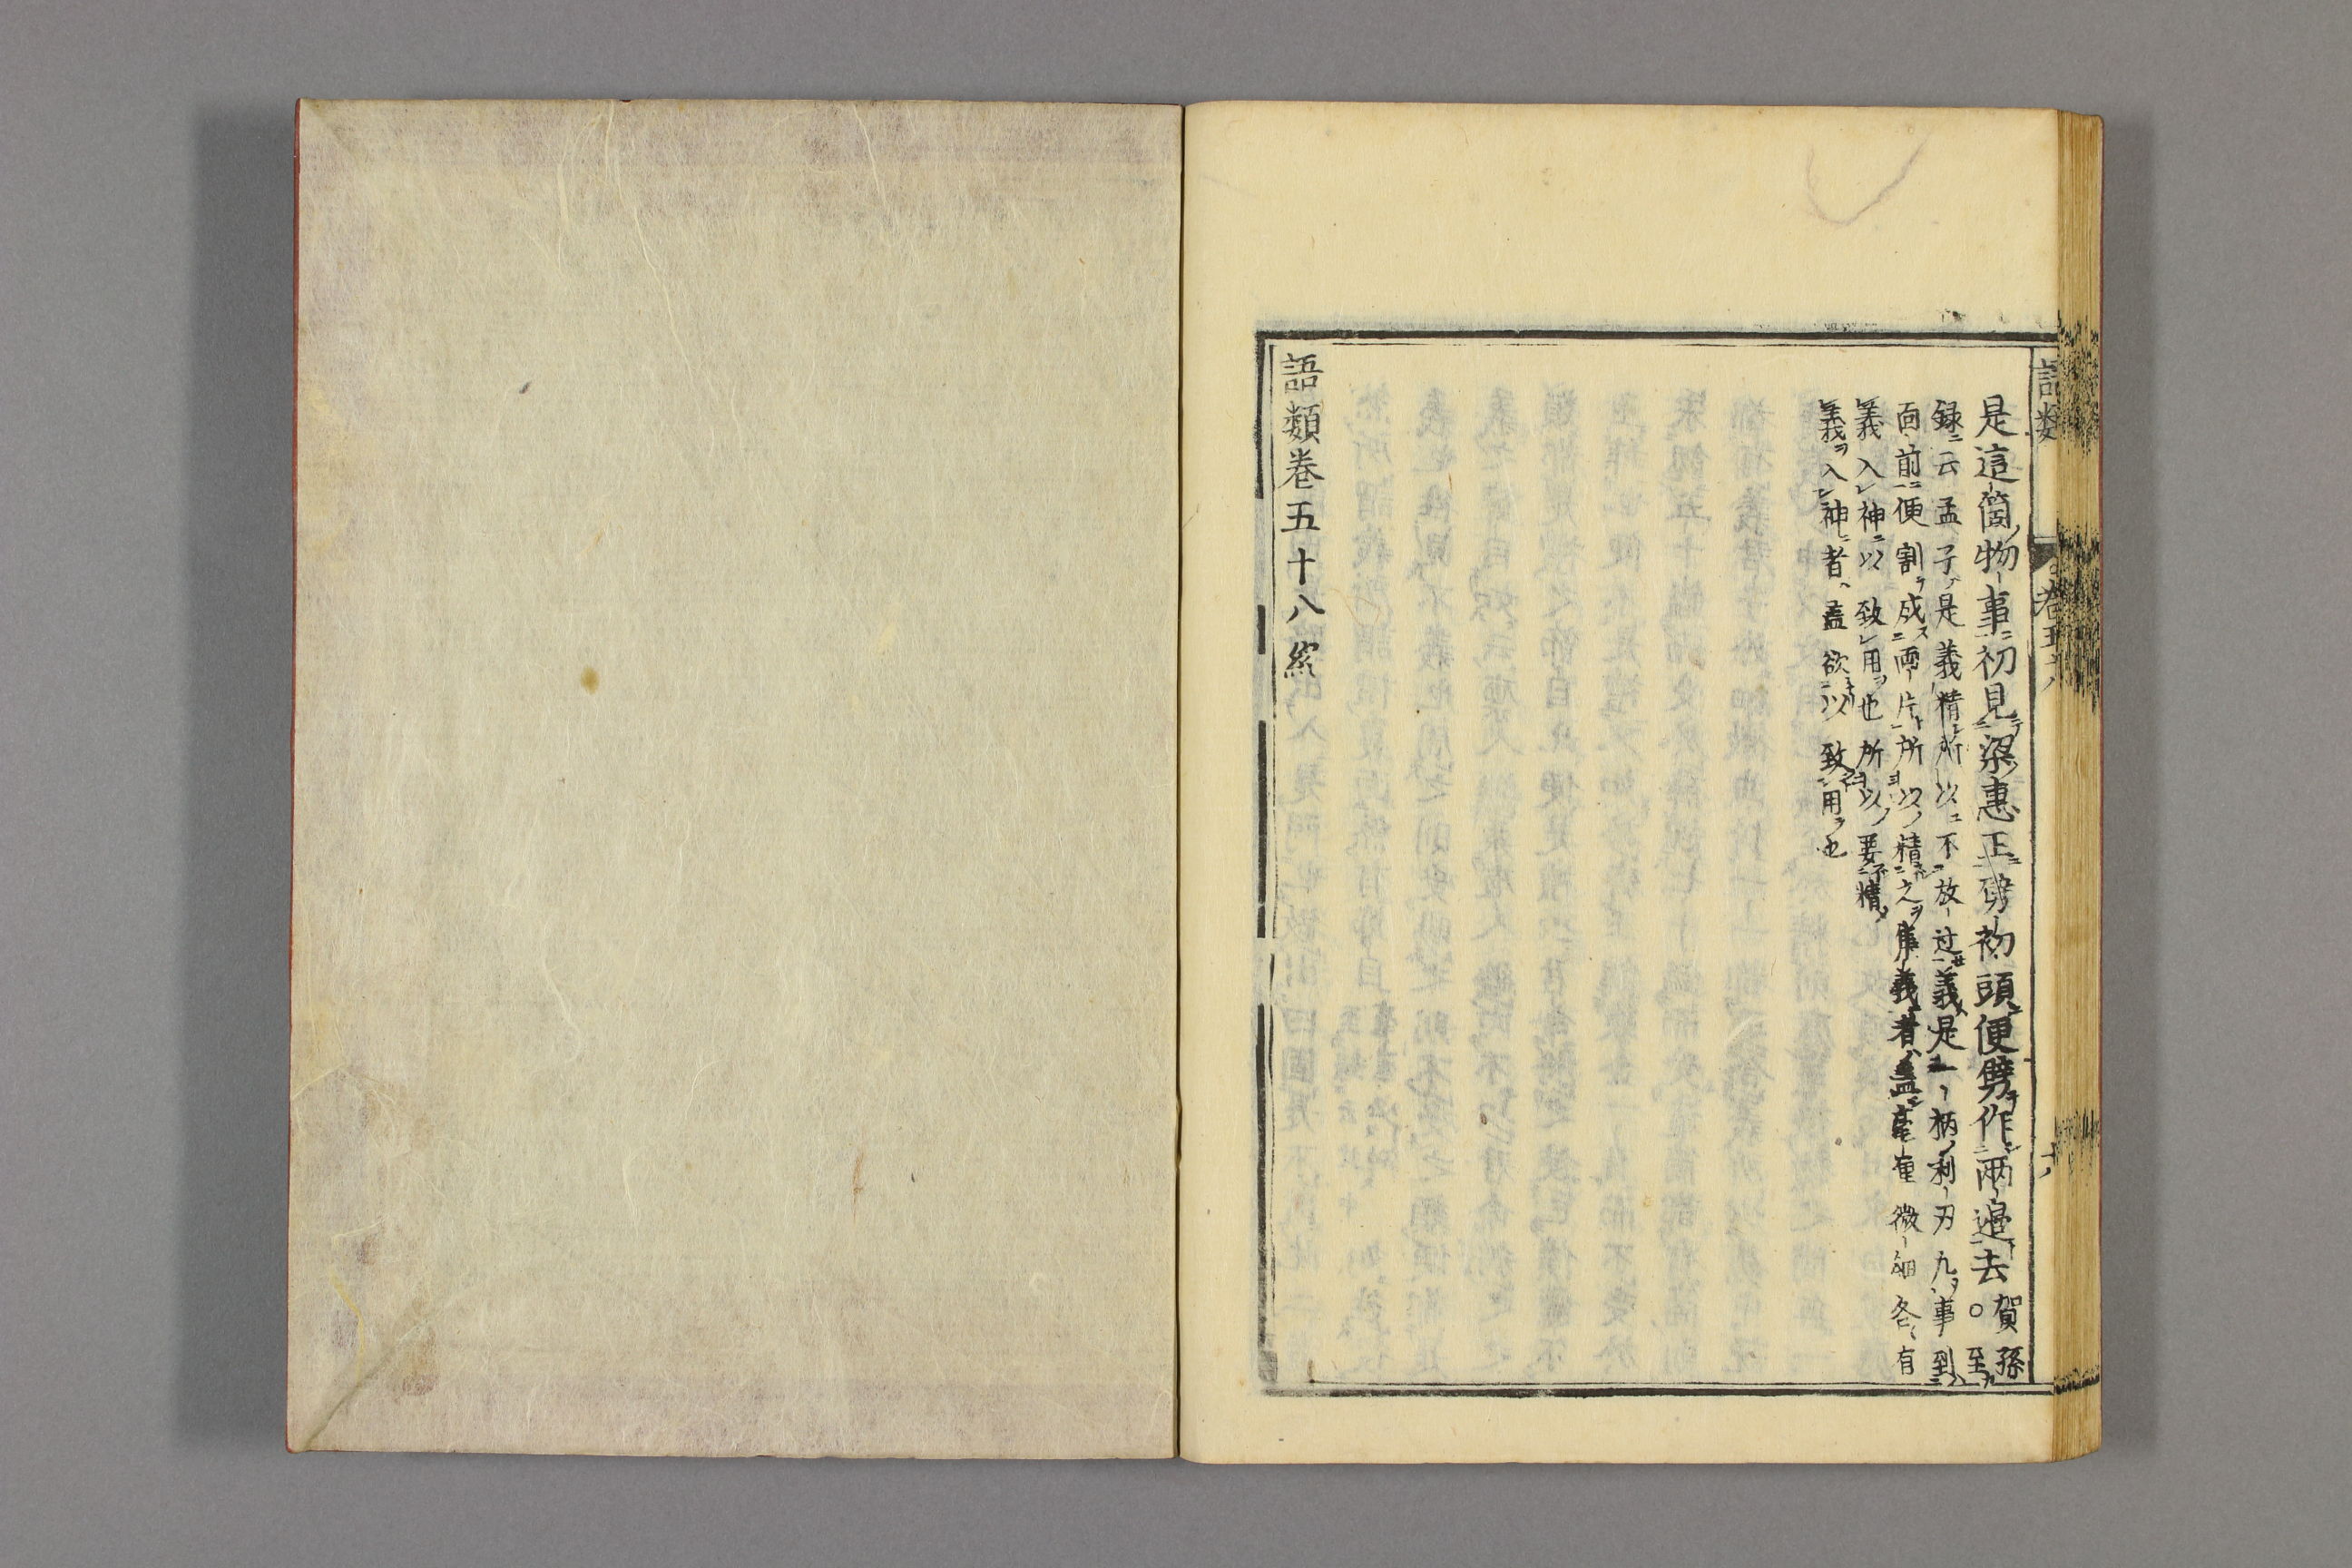 語類 卷五十八 十八
是這箇物事初見梁惠王劈初頭便劈作兩邊去。賀孫○至
録云孟子是義精所以不放過義是一柄利刃凢事到
面前便割成兩片所以精之集義者蓋毫釐微細各有
義入神以致用也所以要精
義入神者蓋欲以致用也
語類卷五十八終